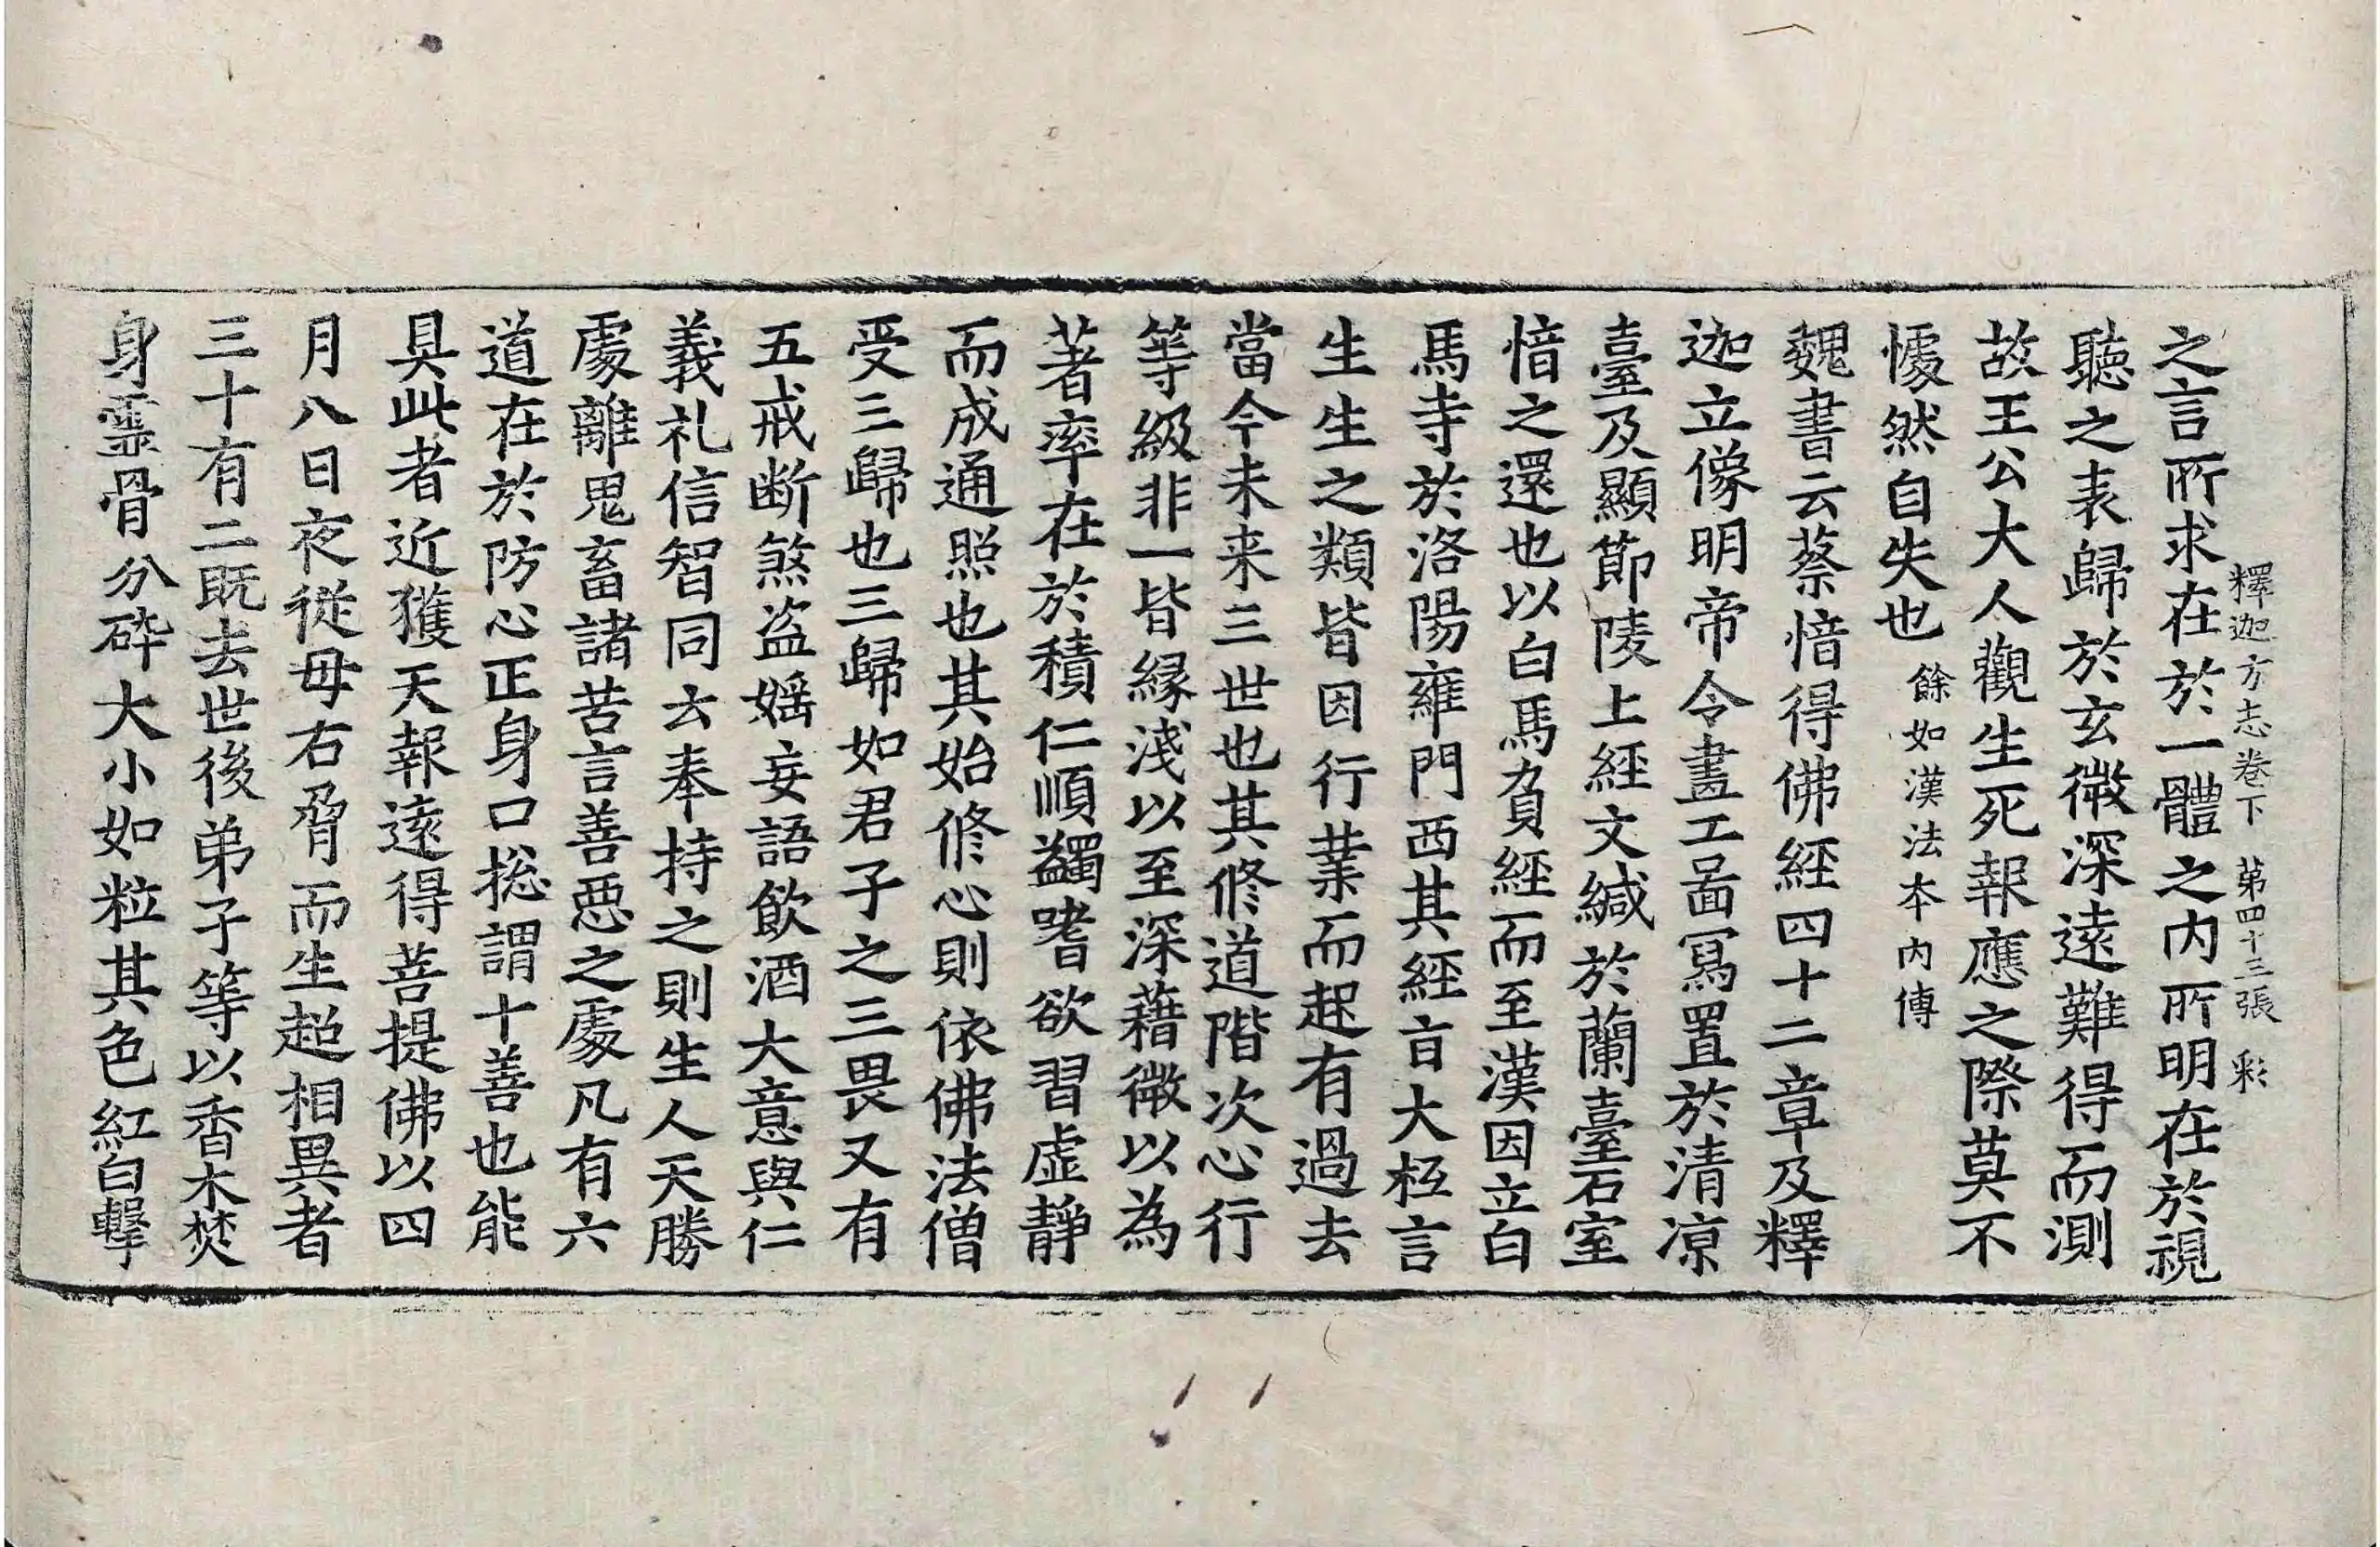 釋迦方志卷下 第四十三張 彩
之言所求在於一體之内所明在於視
聽之表歸於玄微深遠難得而測
故王公大人觀生死報應之際莫不
懅然自失也 餘如漢法本内傳
魏書云蔡愔得佛經四十二章及釋
迦立像明帝令畫工啚寫置於清涼
臺及顯節陵上經文緘於蘭臺石室
愔之還也以白馬負經而至漢因立白
馬寺於洛陽雍門西其經旨大柢言
生生之類皆因行業而起有過去
當今未来三世也其修道階次心行
等級非一皆緣淺以至深藉微以為
著率在於積仁順蠲嗜欲習虛靜
而成通照也其始修心則依佛法僧
受三歸也三歸如君子之三畏又有
五戒断煞盗婬妄語飲酒大意與仁
義礼信智同去奉持之則生人天勝
處離鬼畜諸苦言善惡之處凡有六
道在於防心正身口捴謂十善也能
具此者近獲天報遠得菩提佛以四
月八日夜從母右脅而生超相異者
三十有二既去世後弟子等以香木焚
身靈骨分碎大小如粒其色紅白擊